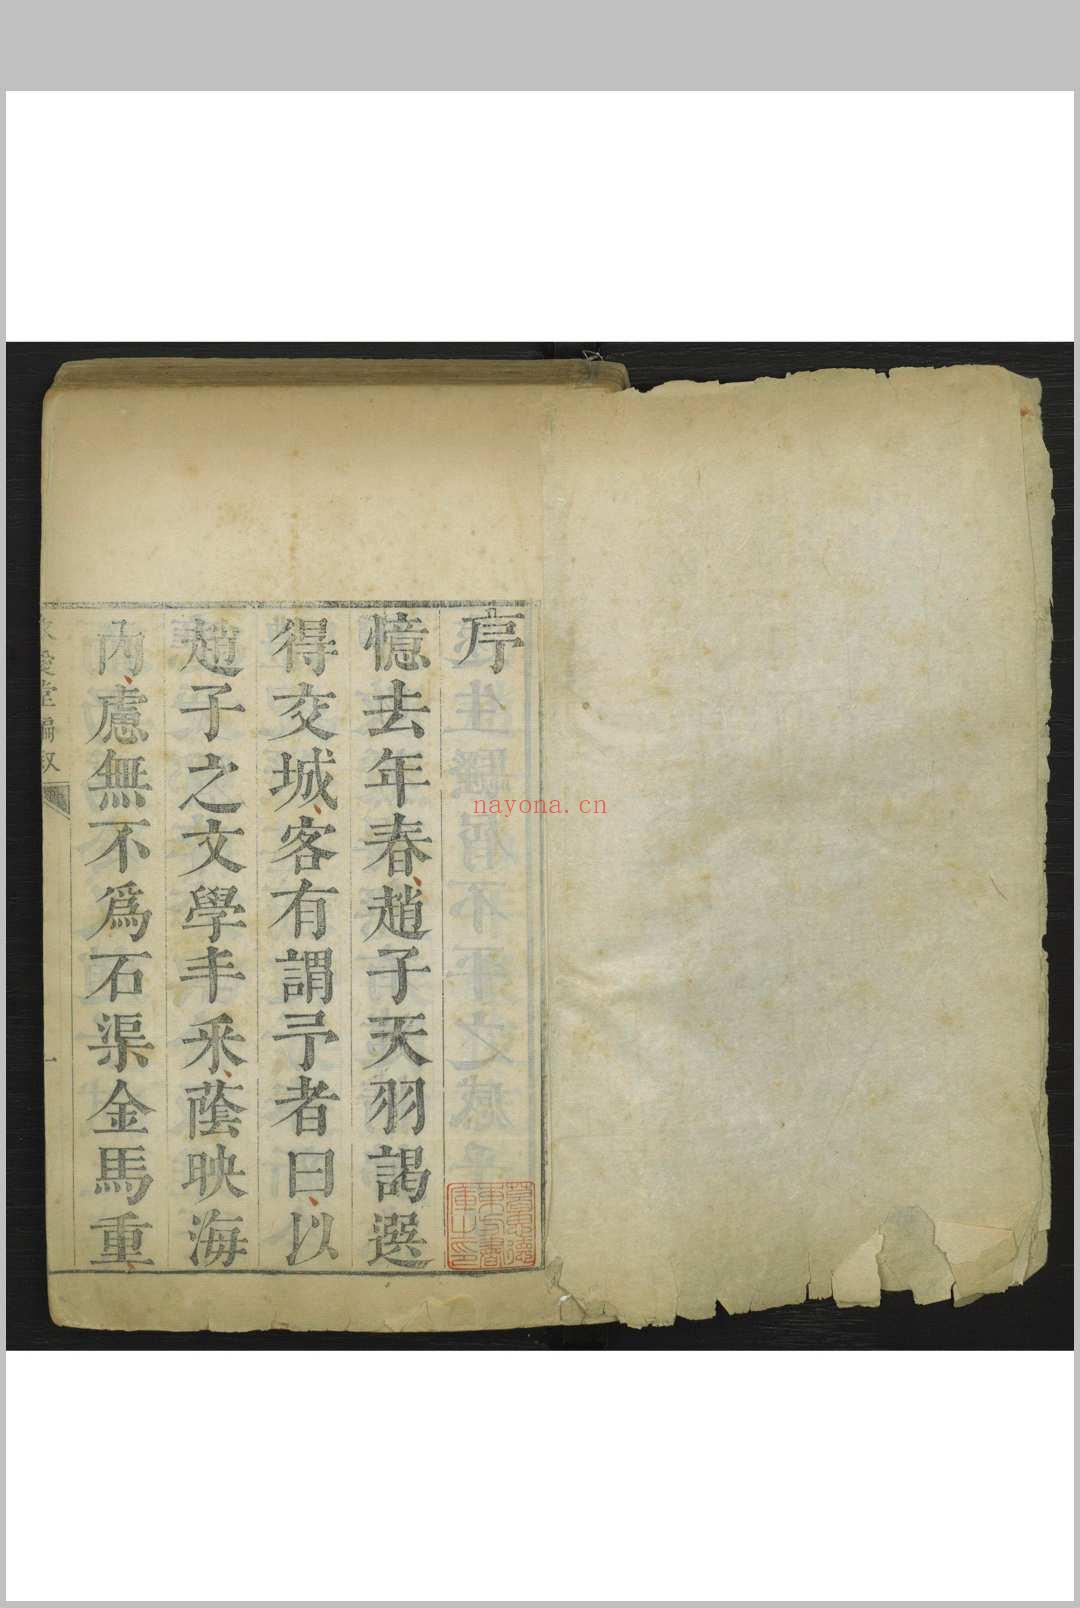 序
憶去年春趙子天羽謁選
得交城客有謂予者曰以
趙子之文學丰采蔭映海
內慮無不爲石渠金馬重
愛堂編叙
一
nayona.cn